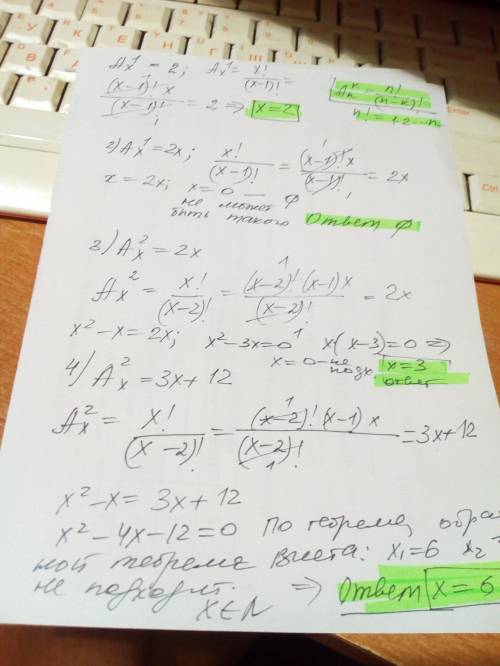 Aₓ¹ = 2; Aₓ¹ = x!/(x-1)! =
(x-1)! x/(x-1)! = 2 => x=2
Aₙᵏ = n!/(n-k)!
n! = 1·2·...n
2) Aₓ¹ = 2x; x!/(x-1)! = (x-1)! x/(x-1)! = 2x
x = 2x; x=0 — не может быть такого Ответ ∅
3) Aₓ² = 2x
Aₓ² = x!/(x-2)! = (x-2)! (x-1) x/(x-2)! = 2x
x² - x = 2x; x² - 3x = 0 x(x-3) = 0 =>
x=0 - не подх. x=3 ответ
4) Aₓ² = 3x + 12
Aₓ² = x!/(x-2)! = (x-2)! (x-1) x/(x-2)! = 3x+12
x² - x = 3x + 12
x² - 4x - 12 = 0 По теореме, обрат
ной теореме Виета: x₁=6 x₂ =
не подходит. => Ответ x = 6
x ∈ N